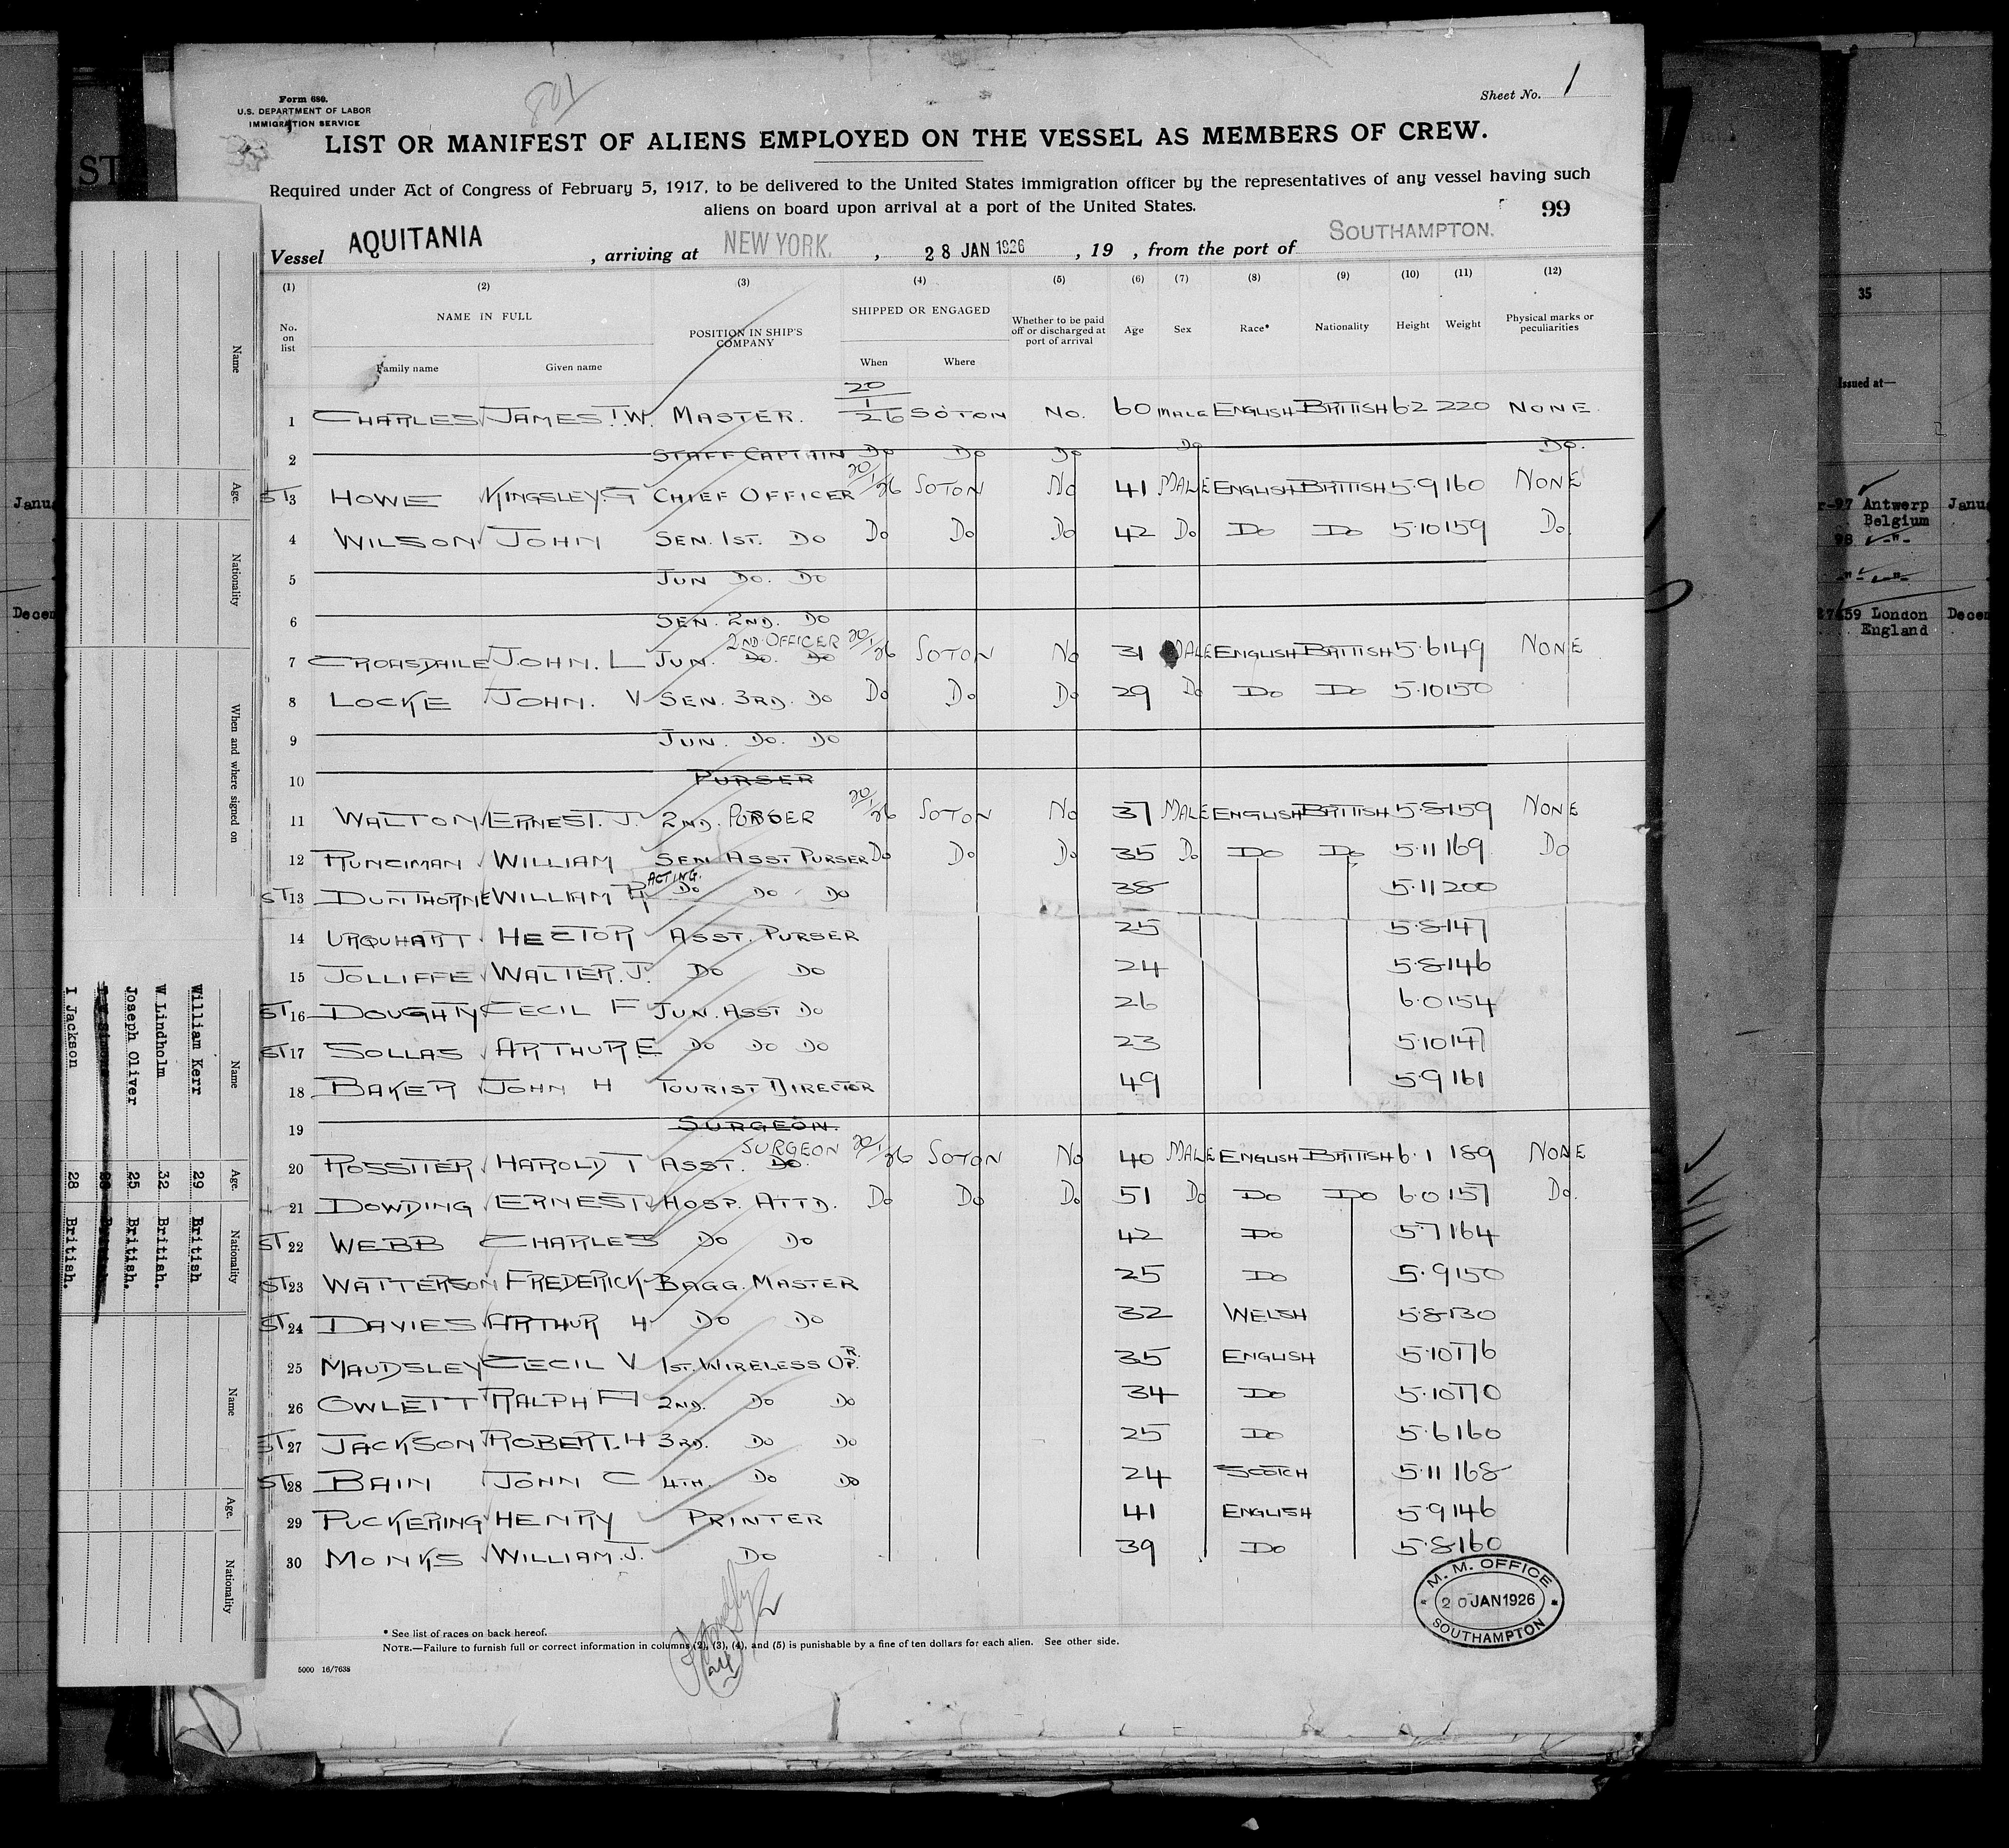 Form 680.
U.S. DEPARTMENT OF LABOR
IMMIGRATION SERVICE
801
Sheet No. 1
LIST OR MANIFEST OF ALIENS EMPLOYED ON THE VESSEL AS MEMBERS OF CREW.
Required under Act of Congress of February 5, 1917, to be delivered to the United States immigration officer by the representatives of any vessel having such
aliens on board upon arrival at a port of the United States.
99
Vessel AQUITANIA, arriving at NEW YORK, 28 JAN 1926, 19 , from the port of SOUTHAMPTON.
(1) (2) (3) (4) (5) (6) (7) (8) (9) (10) (11) (12)
No. on list NAME IN FULL POSITION IN SHIP'S COMPANY SHIPPED OR ENGAGED Whether to be paid off or discharged at port of arrival Age Sex Race* Nationality Height Weight Physical marks or peculiarities
Family name Given name When Where
1 CHARLES JAMES.T.W. MASTER. 20/1/26 SOTON No. 60 MALE ENGLISH BRITISH 6 2 220 NONE.
2 STAFF CAPTAIN Do Do Do Do Do.
ST 3 HOWE KINGSLEY.G CHIEF OFFICER 20/1/26 SOTON No 41 MALE ENGLISH BRITISH 5.9 160 NONE
4 WILSON JOHN SEN. 1ST. DO Do Do Do 42 Do Do Do 5.10 159 Do.
5 JUN DO. DO
6 SEN. 2ND. DO
7 CROASDAILE JOHN. L JUN. DO. DO 2ND OFFICER 20/1/26 SOTON No 31 MALE ENGLISH BRITISH 5.6 149 NONE
8 LOCKE JOHN. V SEN. 3RD. DO Do Do Do 29 Do Do Do 5.10 150
9 JUN. DO. DO
10 PURSER
11 WALTON ERNEST. J. 2ND. PURSER 20/1/26 SOTON No 37 MALE ENGLISH BRITISH 5.8 159 NONE
12 RUNCIMAN WILLIAM SEN. ASST PURSER Do Do Do 35 Do Do Do 5.11 169. Do
ST 13 DUNTHORNE WILLIAM R ACTING. DO DO DO 38 5.11 200
14 URQUHART HECTOR ASST. PURSER 25 5.8 147
15 JOLLIFFE WALTER.J. DO DO 24 5.8 146
ST 16 DOUGHTY CECIL F JUN. ASST DO 26 6.0 154
ST 17 SOLLAS ARTHUR E DO DO DO 23 5.10 147
18 BAKER JOHN H TOURIST DIRECTOR 49 5.9 161
19 SURGEON.
20 ROSSITER HAROLD T ASST. DO. SURGEON 20/1/26 SOTON No 40 MALE ENGLISH BRITISH 6.1 189 NONE
21 DOWDING ERNEST HOSP. ATTD. Do Do Do 51 Do Do Do 6.0 157 Do.
ST 22 WEBB CHARLES DO DO 42 Do 5.7 164
ST 23 WATTERSON FREDERICK BAGG. MASTER 25 Do 5.9 150
ST 24 DAVIES ARTHUR H DO DO 32 WELSH 5.8 130
25 MAUDSLEY CECIL V 1ST. WIRELESS OPR. 35 ENGLISH 5.10 176
26 OWLETT RALPH A 2ND. DO DO 34 Do 5.10 170
ST 27 JACKSON ROBERT. H 3RD. DO DO 25 Do 5.6 160
ST 28 BAIN JOHN C 4TH. DO DO 24 SCOTCH 5.11 168
29 PUCKERING HENRY PRINTER 41 ENGLISH 5.9 146
30 MONKS WILLIAM.J. DO 39 Do 5.8 160
M. M. OFFICE
20 JAN 1926
SOUTHAMPTON
* See list of races on back hereof.
NOTE.—Failure to furnish full or correct information in columns (2), (3), (4), and (5) is punishable by a fine of ten dollars for each alien. See other side.
5000 16/7638
Name Age. Nationality When and where signed on Name Age. Nationality Name Name Age. Nationality
William Kerr 29 British
W Lindholm 32 British.
Joseph Oliver 25 British.
I Jackson 28 British.
ST
Janu
Decem
35
Issued at—
97 Antwerp Janu
Belgium
98 -"-
-"- -"-
59 London Decem
England